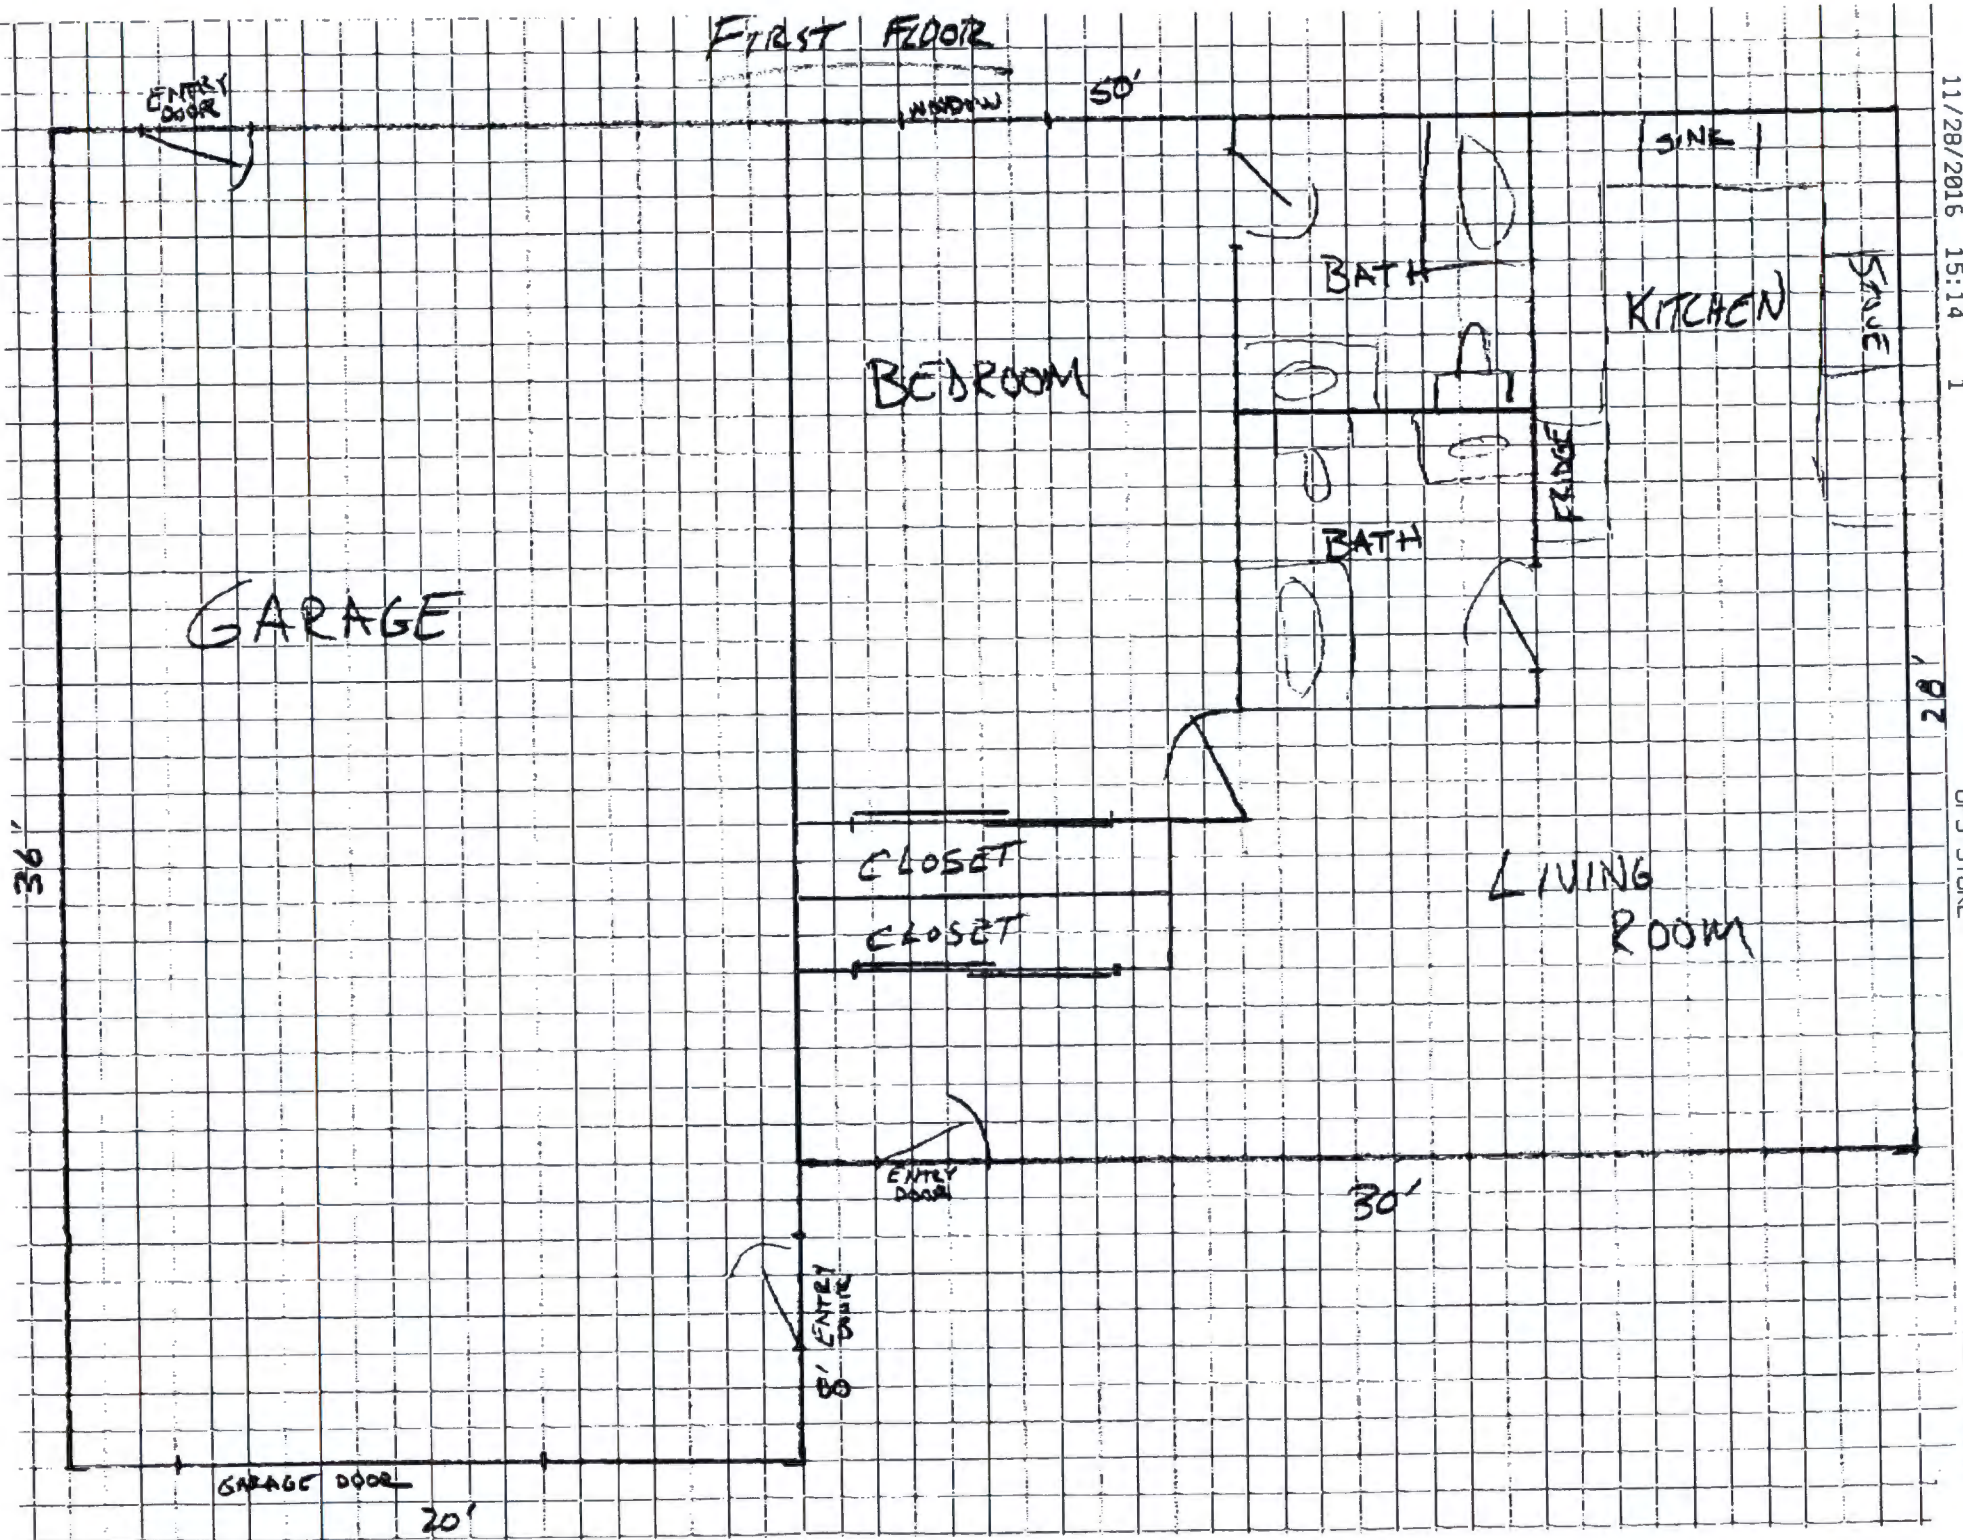 FIRST FLOOR
ENTRY
DOOR
WINDOW
50'
SINK
BATH
KITCHEN
STOVE
BEDROOM
FRIDGE
BATH
GARAGE
28'
36'
CLOSET
CLOSET
LIVING
ROOM
ENTRY
DOOR
30'
8' ENTRY
DOOR
GARAGE DOOR
20'
11/28/2016 15:14 1